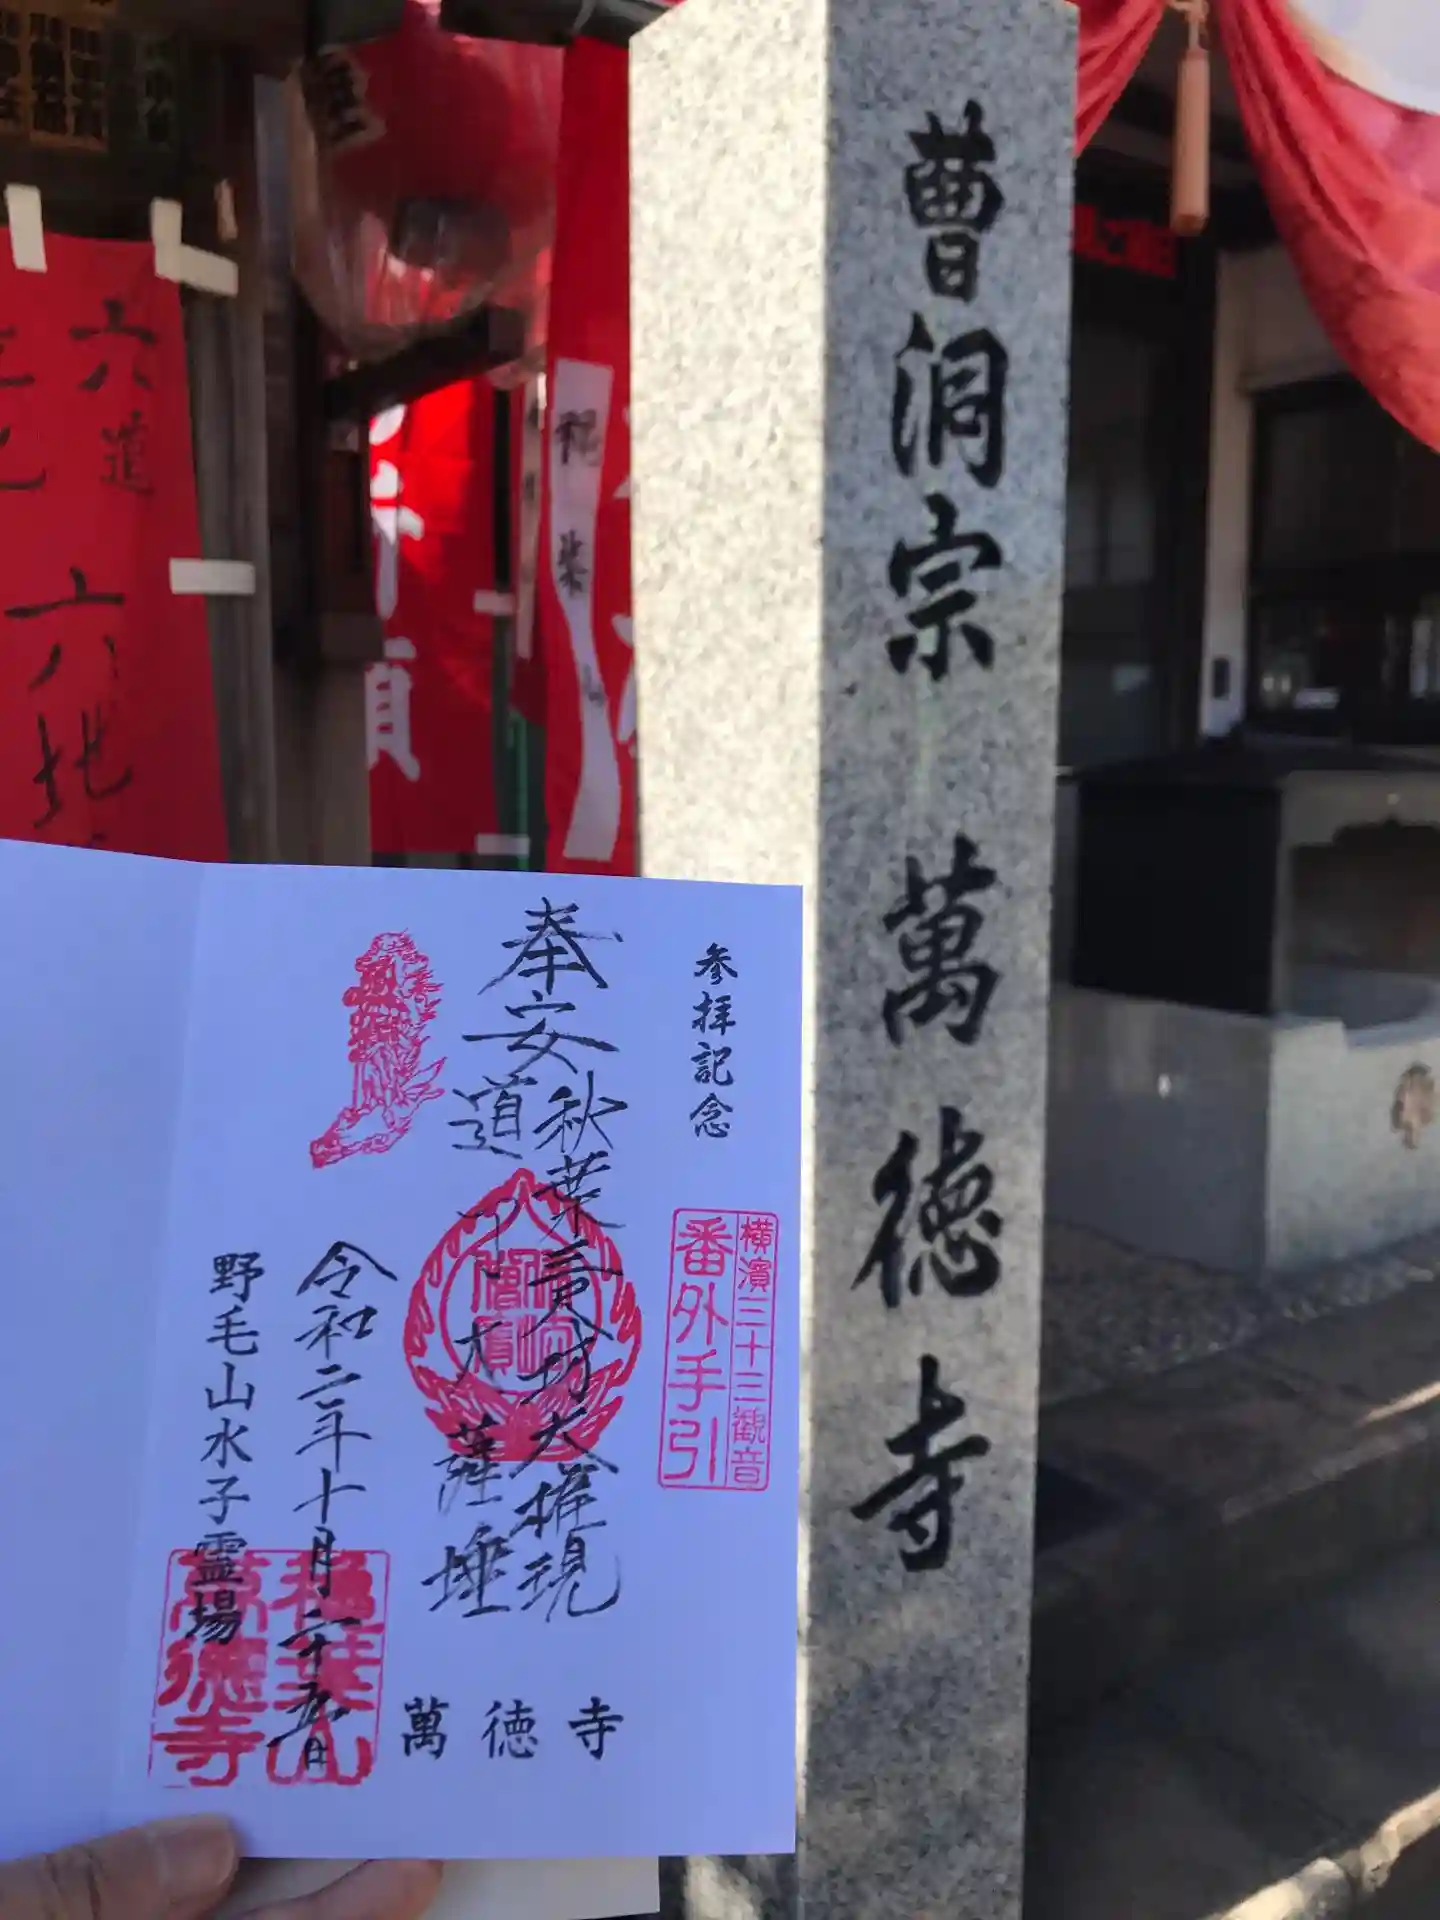 曹洞宗 萬徳寺
六道
六地
祝
参拝記念
横濱三十三観音
番外手引
奉安
秋葉三尺坊大権現
道了大薩埵
令和二年十月二十五日
野毛山水子霊場
萬徳寺
秋葉山
萬徳寺